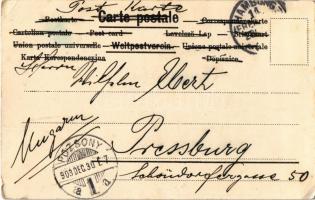 Post Karte
Carte postale
Postkarte Correspondenzkarte
Cartolina postale Post card Levelező-Lap Briefkaart
Union postale universelle Weltpostverein Unione postale universale
Karta Korespondencyjna Dopisnice
Herrn
Wilhelm Ebert
Ungarn
Pressburg
Schöndorfergasse 50
POZSONY
905 DEC. 30